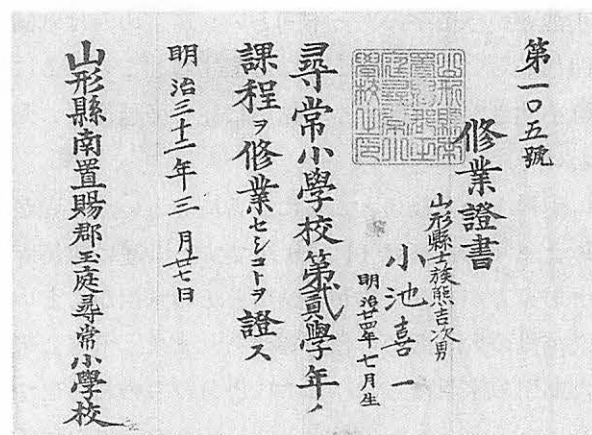 第一〇五號
修業證書
山形縣士族熊吉次男
小池喜一
明治廿四年七月生
尋常小學校第貳學年ノ
課程ヲ修業セシコトヲ證ス
明治三十二年三月廿七日
山形縣南置賜郡玉庭尋常小學校